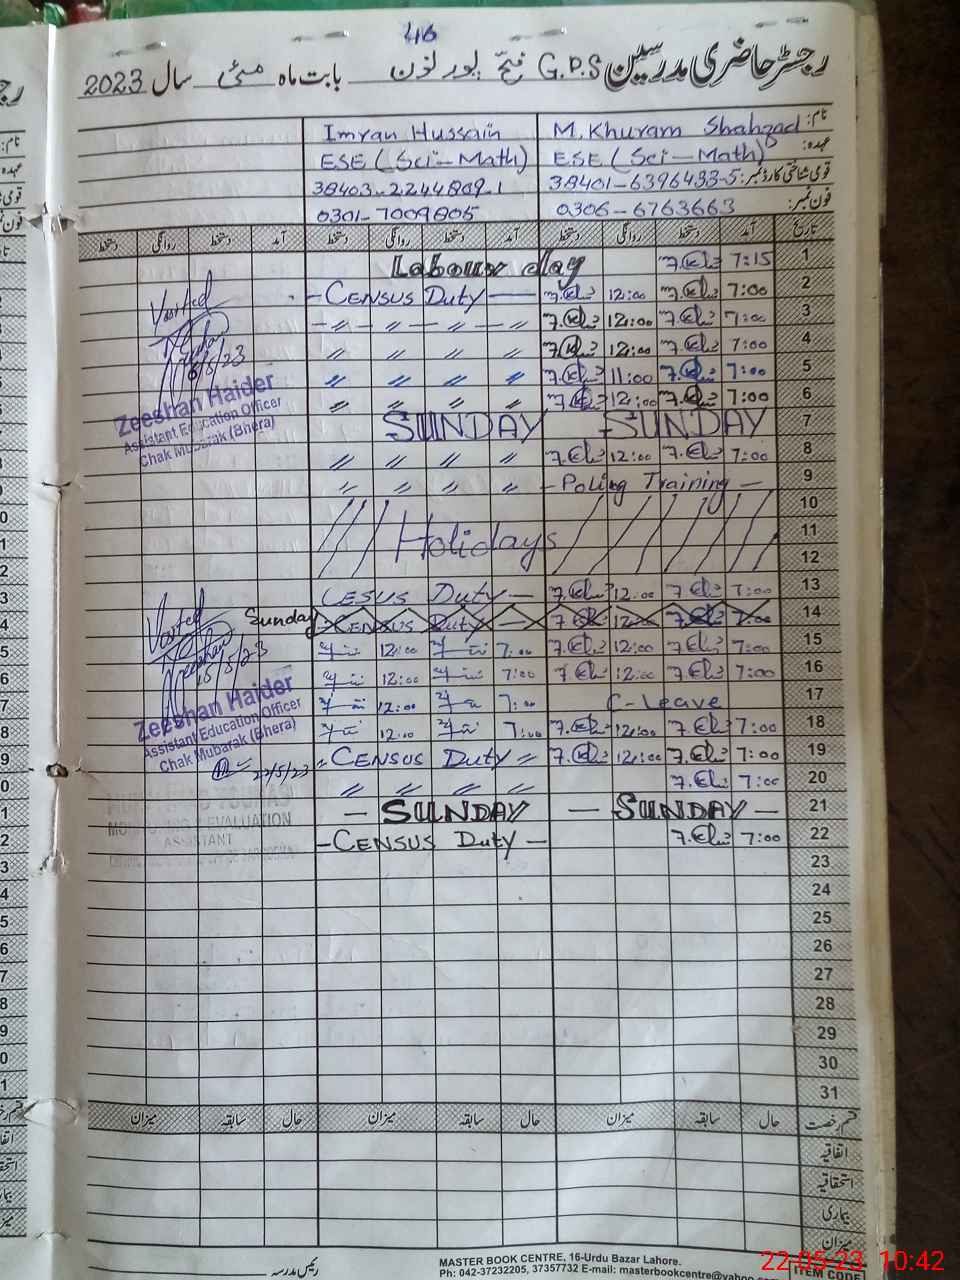 416
رجسٹر حاضری مدرسین G.P.S فتح پور نون بابت ماہ مئی سال 2023
نام: M. Khuram Shahzad Imran Hussain
عہدہ: ESE (Sci-Math) ESE (Sci-Math)
قومی شناختی کارڈ نمبر: 38401-6396433-5 38403-2244809-1
فون نمبر: 0306-6763663 0301-7009805
تاریخ آمد دستخط روانگی دستخط آمد دستخط روانگی دستخط آمد دستخط روانگی دستخط
1 7:15 Labour day
2 7:00 12:00 - Census Duty -
3 7:00 12:00 - 〃 - 〃 - 〃 - 〃
4 7:00 12:00 〃 〃 〃 〃
5 7:00 11:00 〃 〃 〃 〃
6 7:00 12:00 〃 〃 〃 〃
7 SUNDAY SUNDAY
8 7:00 12:00 〃 〃 〃 〃
9 - Poling Training - 〃 〃 〃 〃
10
11 Holidays
12
13 7:00 12:00 Cesus Duty -
14 7:00 12:00 - Census Duty - Sunday
15 7:00 12:00 7:00 12:00
16 7:00 12:00 7:00 12:00
17 C-Leave 7:00 12:00
18 7:00 12:00 7:00 12:00
19 7:00 12:00 〃 Census Duty 〃
20 7:00 〃 〃 〃 〃
21 - SUNDAY - - SUNDAY
22 7:00 - Census Duty -
23
24
25
26
27
28
29
30
31
Zeeshan Haider
Assistant Education Officer
Chak Mubarak (Bhera)
Zeeshan Haider
Assistant Education Officer
Chak Mubarak (Bhera)
22/5/23
MONITORING & EVALUATION
ASSISTANT
قسم رخصت حال سابقہ میزان حال سابقہ میزان حال سابقہ میزان
اتفاقیہ
استحقاقیہ
بیماری
میزان
رئیس مدرسہ
MASTER BOOK CENTRE, 16-Urdu Bazar Lahore.
Ph: 042-37232205, 37357732 E-mail: masterbookcentre@yahoo.
ITEM CODE
22-05-23 10:42